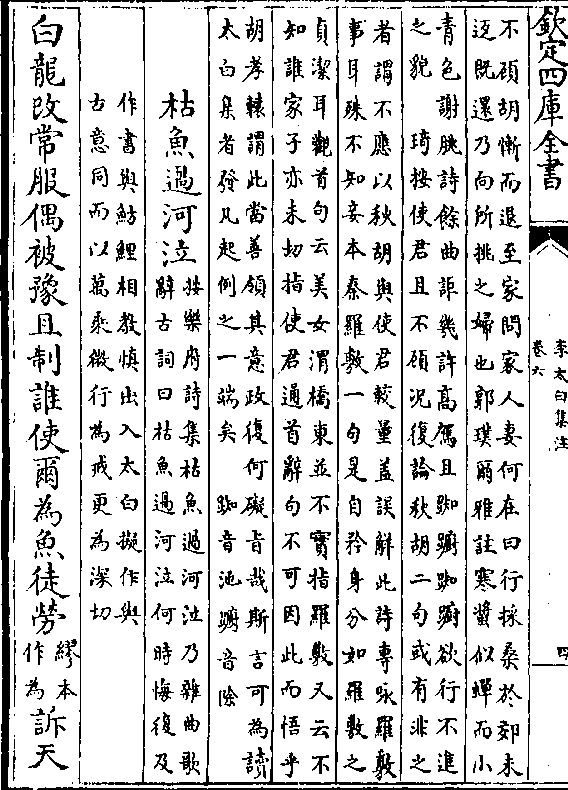 欽定四庫全書
李太白集注
卷六
四
不顧胡慚而退至家問家人妻何在曰行採桑於郊未
返既還乃向所挑之婦也郭璞爾雅註寒螿似蟬而小
青色謝朓詩餘曲詎幾許高駕且踟躕踟躕欲行不進
之貌　琦按使君且不顧況復論秋胡二句或有非之
者謂不應以秋胡與使君較量蓋誤解此詩專咏羅敷
事耳殊不知妾本秦羅敷一句是自矜身分如羅敷之
貞潔耳觀首句云美女渭橋東並不實指羅敷又云不
知誰家子亦未切指使君通首辭句不可因此而悟乎
胡孝轅謂此當善領其意政復何礙旨哉斯言可為讀
太白集者發凡起例之一端矣　踟音池躕音除
枯魚過河泣
按樂府詩集枯魚過河泣乃雜曲歌
辭古詞曰枯魚過河泣何時悔復及
作書與魴鯉相教慎出入太白擬作與
古意同而以萬乘微行為戒更為深切
白龍改常服偶被豫且制誰使爾為魚徒勞
繆本
作為
訴天